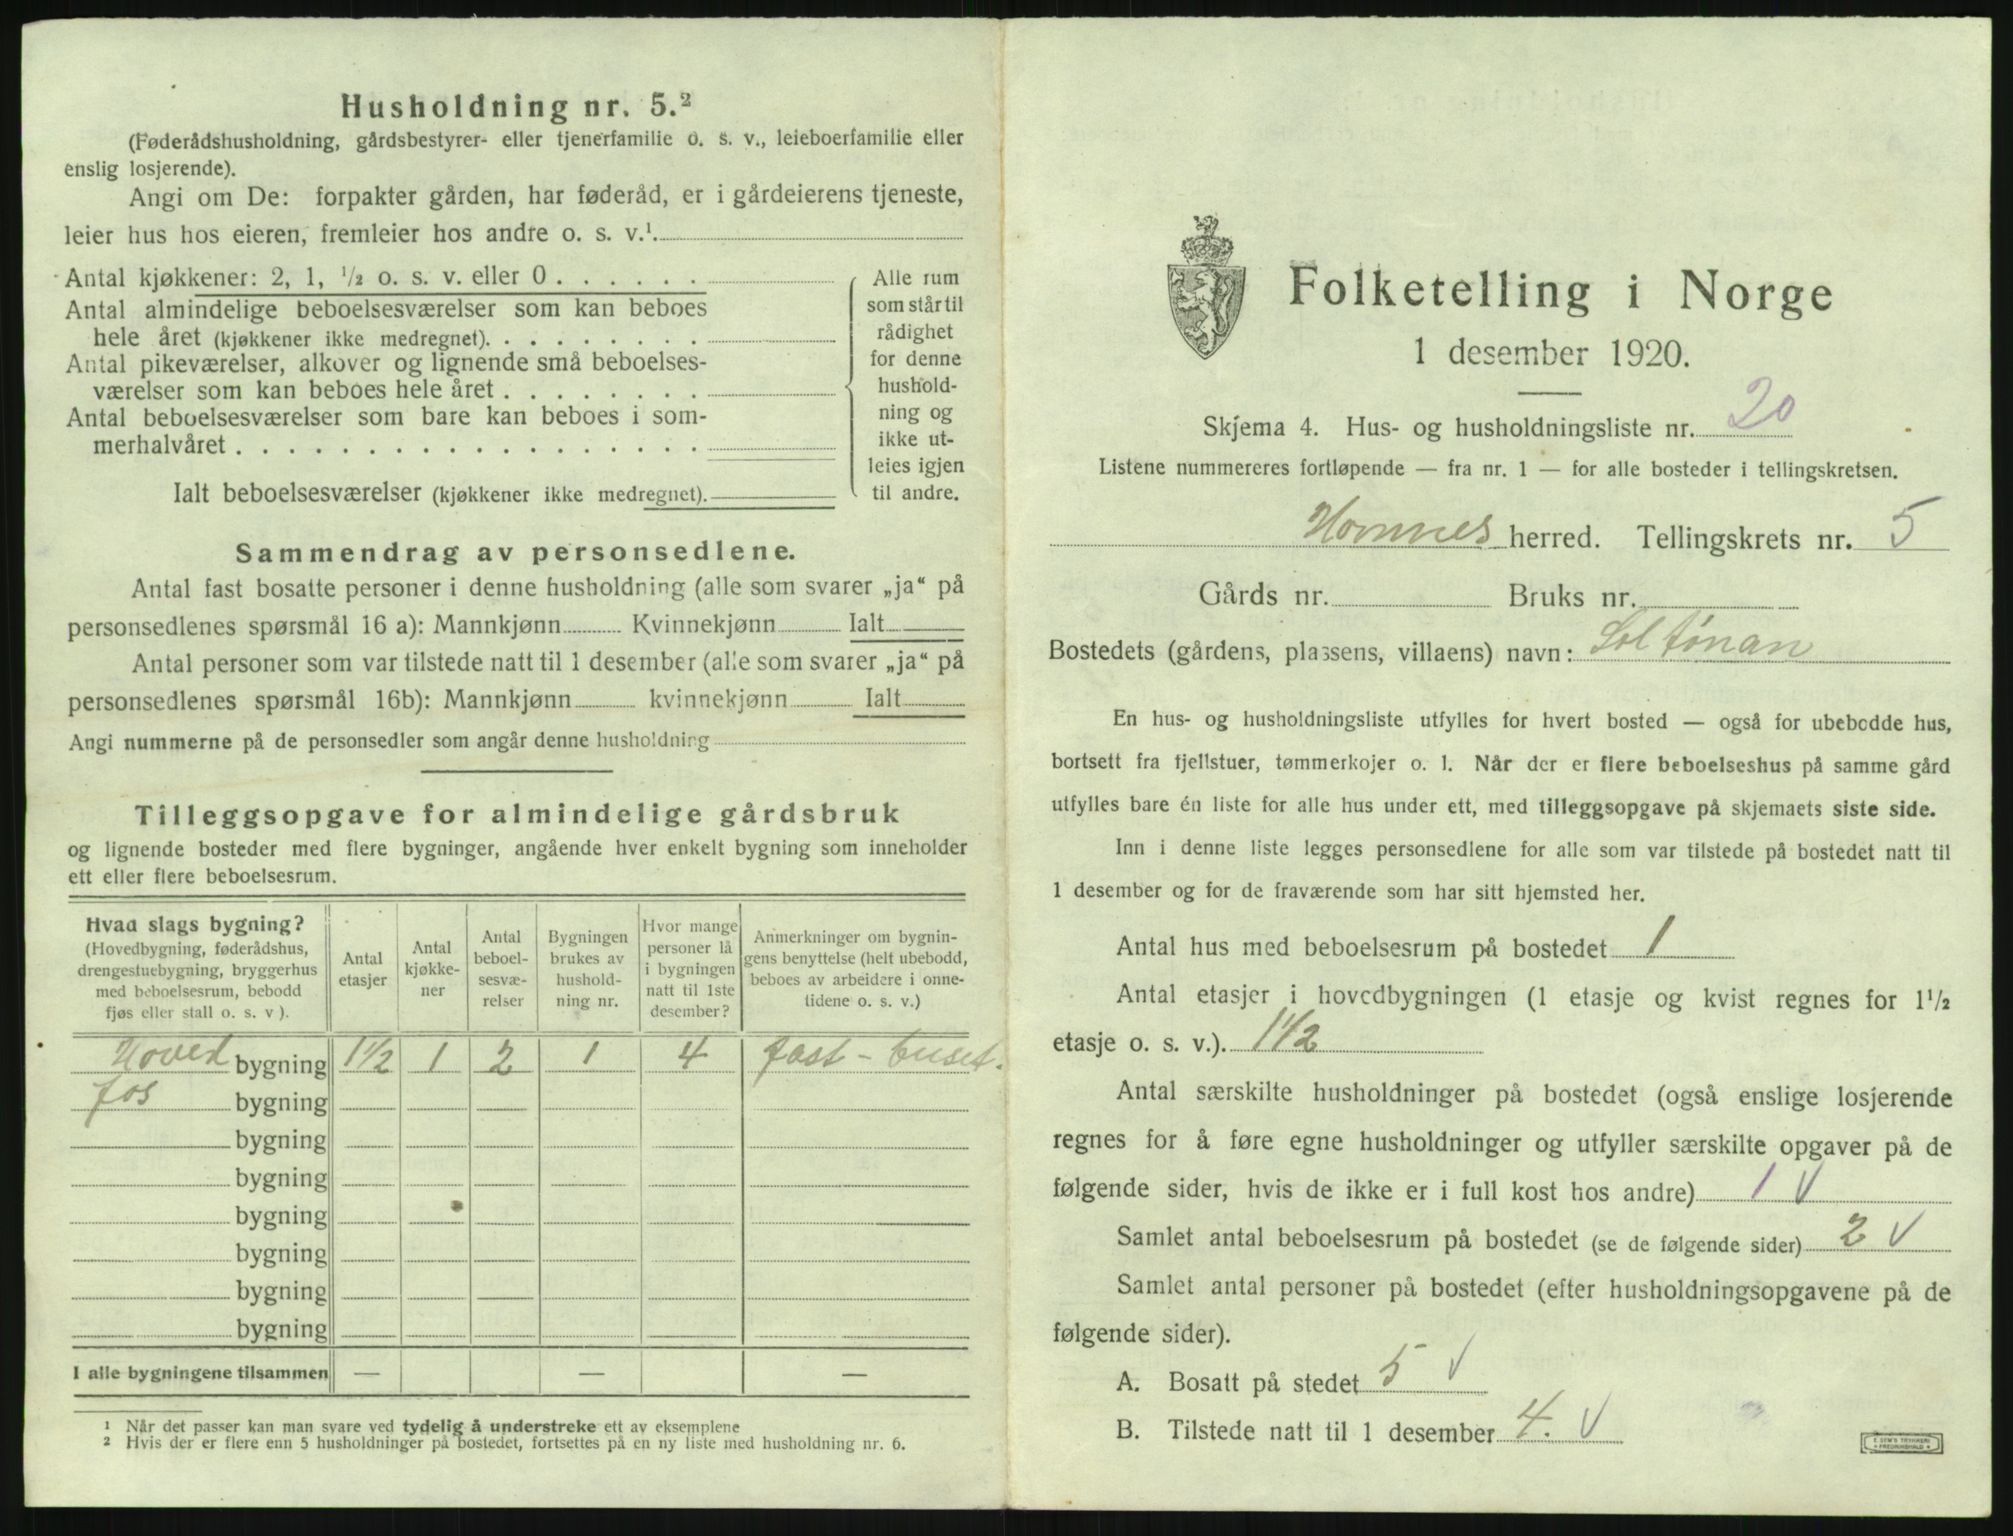 Husholdning nr. 5.²
(Føderådshusholdning, gårdsbestyrer- eller tjenerfamilie o. s. v., leieboerfamilie eller
enslig losjerende).
Angi om De: forpakter gården, har føderåd, er i gårdeierens tjeneste,
leier hus hos eieren, fremleier hos andre o. s. v.¹
Antal kjøkkener: 2, 1, ½ o. s. v. eller 0
Antal almindelige beboelsesværelser som kan beboes
hele året (kjøkkener ikke medregnet).
Antal pikeværelser, alkover og lignende små beboelses-
værelser som kan beboes hele året
Antal beboelsesværelser som bare kan beboes i som-
merhalvåret
Ialt beboelsesværelser (kjøkkener ikke medregnet).
Alle rum
som står til
rådighet
for denne
hushold-
ning og
ikke ut-
leies igjen
til andre.
Sammendrag av personsedlene.
Antal fast bosatte personer i denne husholdning (alle som svarer „ja“ på
personsedlenes spørsmål 16 a): Mannkjønn Kvinnekjønn Ialt
Antal personer som var tilstede natt til 1 desember (alle som svarer „ja“ på
personsedlenes spørsmål 16b): Mannkjønn kvinnekjønn Ialt
Angi nummerne på de personsedler som angår denne husholdning
Tilleggsopgave for almindelige gårdsbruk
og lignende bosteder med flere bygninger, angående hver enkelt bygning som inneholder
ett eller flere beboelsesrum.
Hvad slags bygning?
(Hovedbygning, føderådshus,
drengestuebygning, bryggerhus
med beboelsesrum, bebodd
fjøs eller stall o. s. v ).
Antal
etasjer
Antal
kjøkke-
ner
Antal
beboel-
sesvæ-
relser
Bygningen
brukes av
hushold-
ning nr.
Hvor mange
personer lå
i bygningen
natt til 1ste
desember?
Anmerkninger om bygnin-
gens benyttelse (helt ubebodd,
beboes av arbeidere i onne-
tidene o. s. v.)
Hoved bygning 1½ 1 2 1 4 fast - buset.
fos bygning
bygning
bygning
bygning
bygning
bygning
bygning
I alle bygningene tilsammen — — —
¹ Når det passer kan man svare ved tydelig å understreke ett av eksemplene
² Hvis der er flere enn 5 husholdninger på bostedet, fortsettes på en ny liste med husholdning nr. 6.
Folketelling i Norge
1 desember 1920.
Skjema 4. Hus- og husholdningsliste nr. 20
Listene nummereres fortløpende — fra nr. 1 — for alle bosteder i tellingskretsen.
Hornnes herred. Tellingskrets nr. 5
Gårds nr. Bruks nr.
Bostedets (gårdens, plassens, villaens) navn: Soltønan
En hus- og husholdningsliste utfylles for hvert bosted — også for ubebodde hus,
bortsett fra fjellstuer, tømmerkojer o. l. Når der er flere beboelseshus på samme gård
utfylles bare én liste for alle hus under ett, med tilleggsopgave på skjemaets siste side.
Inn i denne liste legges personsedlene for alle som var tilstede på bostedet natt til
1 desember og for de fraværende som har sitt hjemsted her.
Antal hus med beboelsesrum på bostedet 1
Antal etasjer i hovedbygningen (1 etasje og kvist regnes for 1½
etasje o. s. v.). 1½
Antal særskilte husholdninger på bostedet (også enslige losjerende
regnes for å føre egne husholdninger og utfyller særskilte opgaver på de
følgende sider, hvis de ikke er i full kost hos andre) 1 V
Samlet antal beboelsesrum på bostedet (se de følgende sider) 2 V
Samlet antal personer på bostedet (efter husholdningsopgavene på de
følgende sider).
A. Bosatt på stedet 5 V
B. Tilstede natt til 1 desember 4. V
E. SEM'S TRYKKERI
FREDRIKSHALD